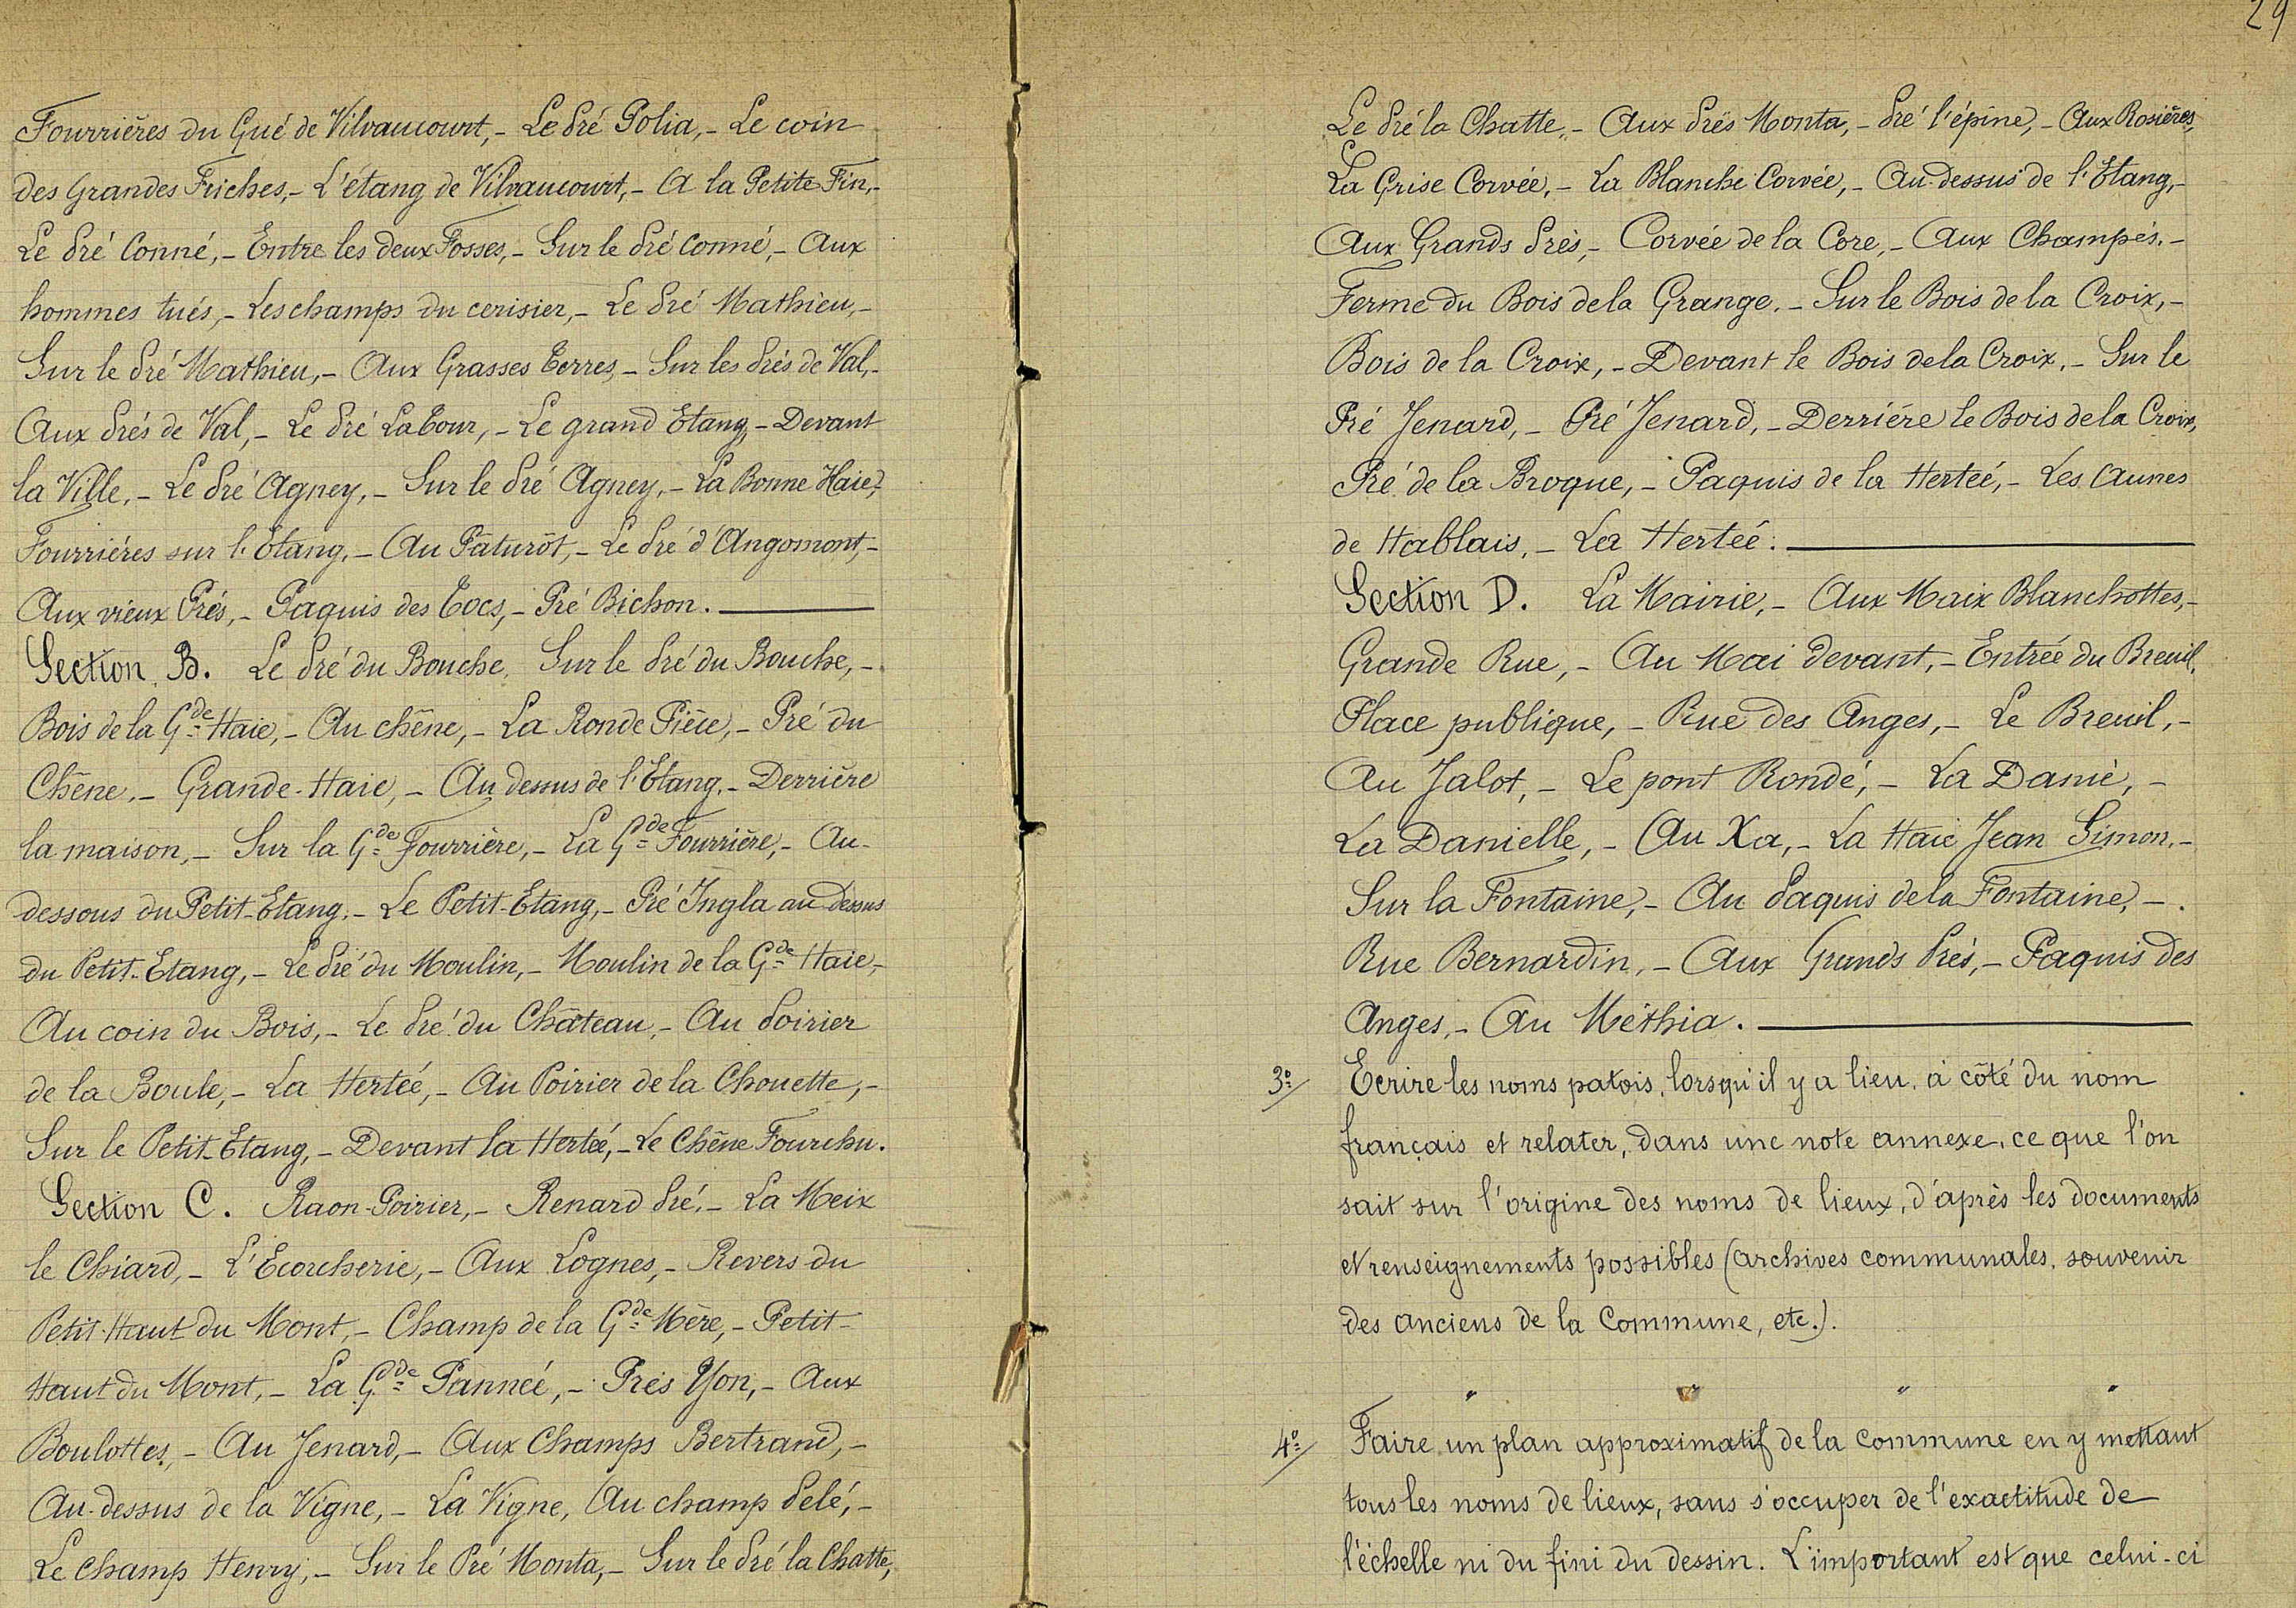 Fourrières du Gué de Vilvaucourt,- Le Pré Polia,- Le coin
des Grandes Friches,- L'étang de Vilvaucourt,- A la Petite Fin,-
Le Pré Conné,- Entre les deux Fosses,- Sur le Pré Conné,- Aux
hommes tués,- Les champs du cerisier,- Le Pré Mathieu,-
Sur le Pré Mathieu,- Aux Grasses Terres,- Sur les Prés de Val,-
Aux Prés de Val,- Le Pré Latour,- Le grand Etang,- Devant
la Ville,- Le Pré Agney,- Sur le Pré Agney,- La Bonne Haie,-
Fourrières sur l'Etang,- Au Pâturôt,- Le Pré d'Angomont,-
Aux vieux Prés,- Paquis des Tocs,- Pré Bichon.
Section B. Le Pré du Bouche, Sur le Pré du Bouche,-
Bois de la Gde Haie,- Au chêne,- La Ronde Pièce,- Pré du
Chêne.- Grande-Haie,- Au dessus de l'Etang.- Derrière
la maison,- Sur la Gde Fourrière,- La Gde Fourrière,- Au-
dessous du Petit-Etang.- Le Petit-Etang,- Pré Ingla au dessus
du Petit-Etang,- Le Pré du Moulin,- Moulin de la Gde Haie,-
Au coin du Bois,- Le Pré du Château,- Au Poirier
de la Boule,- La Hertéé,- Au Poirier de la Chouette,-
Sur le Petit-Etang,- Devant la Hertéé,- Le Chêne Fourchu.
Section C. Raon-Poirier,- Renard Pré,- La Meix
le Chiard,- L'Ecorcherie,- Aux Lognes,- Revers du
Petit-Haut du Mont,- Champ de la Gde Mère,- Petit-
Haut du Mont,- La Gde Pannéé,- Prés Yon,- Aux
Boulottes,- Au Jenard,- Aux Champs Bertrand,-
Au-dessus de la Vigne,- La Vigne, Au champ Pelé,-
Le champ Henry,- Sur le Pré Monta,- Sur le Pré la Chatte,
29
Le Pré la Chatte,- Aux Prés Monta,- Pré l'épine,- Aux Rosières,
La Grise Corvée,- La Blanche Corvée,- Au-dessus de l'Etang,-
Aux Grands Prés,- Corvée de la Core,- Aux Champés.-
Ferme du Bois de la Grange.- Sur le Bois de la Croix,-
Bois de la Croix,- Devant le Bois de la Croix.- Sur le
Pré Jenard,- Pré Jenard,- Derrière le Bois de la Croix,
Pré de la Broque,- Paquis de la Hertéé,- Les Aunes
de Hablais,- La Hertéé.
Section D. La Mairie,- Aux Maix Blanchottes,-
Grande Rue,- Au Mai devant,- Entrée du Breuil,
Place publique,- Rue des Anges,- Le Breuil,-
Au Jalot,- Le pont Rondé,- La Danié,-
La Danielle,- Au Xa,- La Haie Jean Simon.-
Sur la Fontaine,- Au Paquis de la Fontaine,-.
Rue Bernardin,- Aux Grands Prés,- Paquis des
Anges,- Au Méthia.
3º/ Ecrire les noms patois, lorsqu'il y a lieu, à côté du nom
français et relater, dans une note annexe, ce que l'on
sait sur l'origine des noms de lieux, d'après les documents
et renseignements possibles (archives communales, souvenir
des anciens de la Commune, etc.).
" " " "
4º/ Faire un plan approximatif de la commune en y mettant
tous les noms de lieux, sans s'occuper de l'exactitude de
l'échelle ni du fini du dessin. L'important est que celui-ci